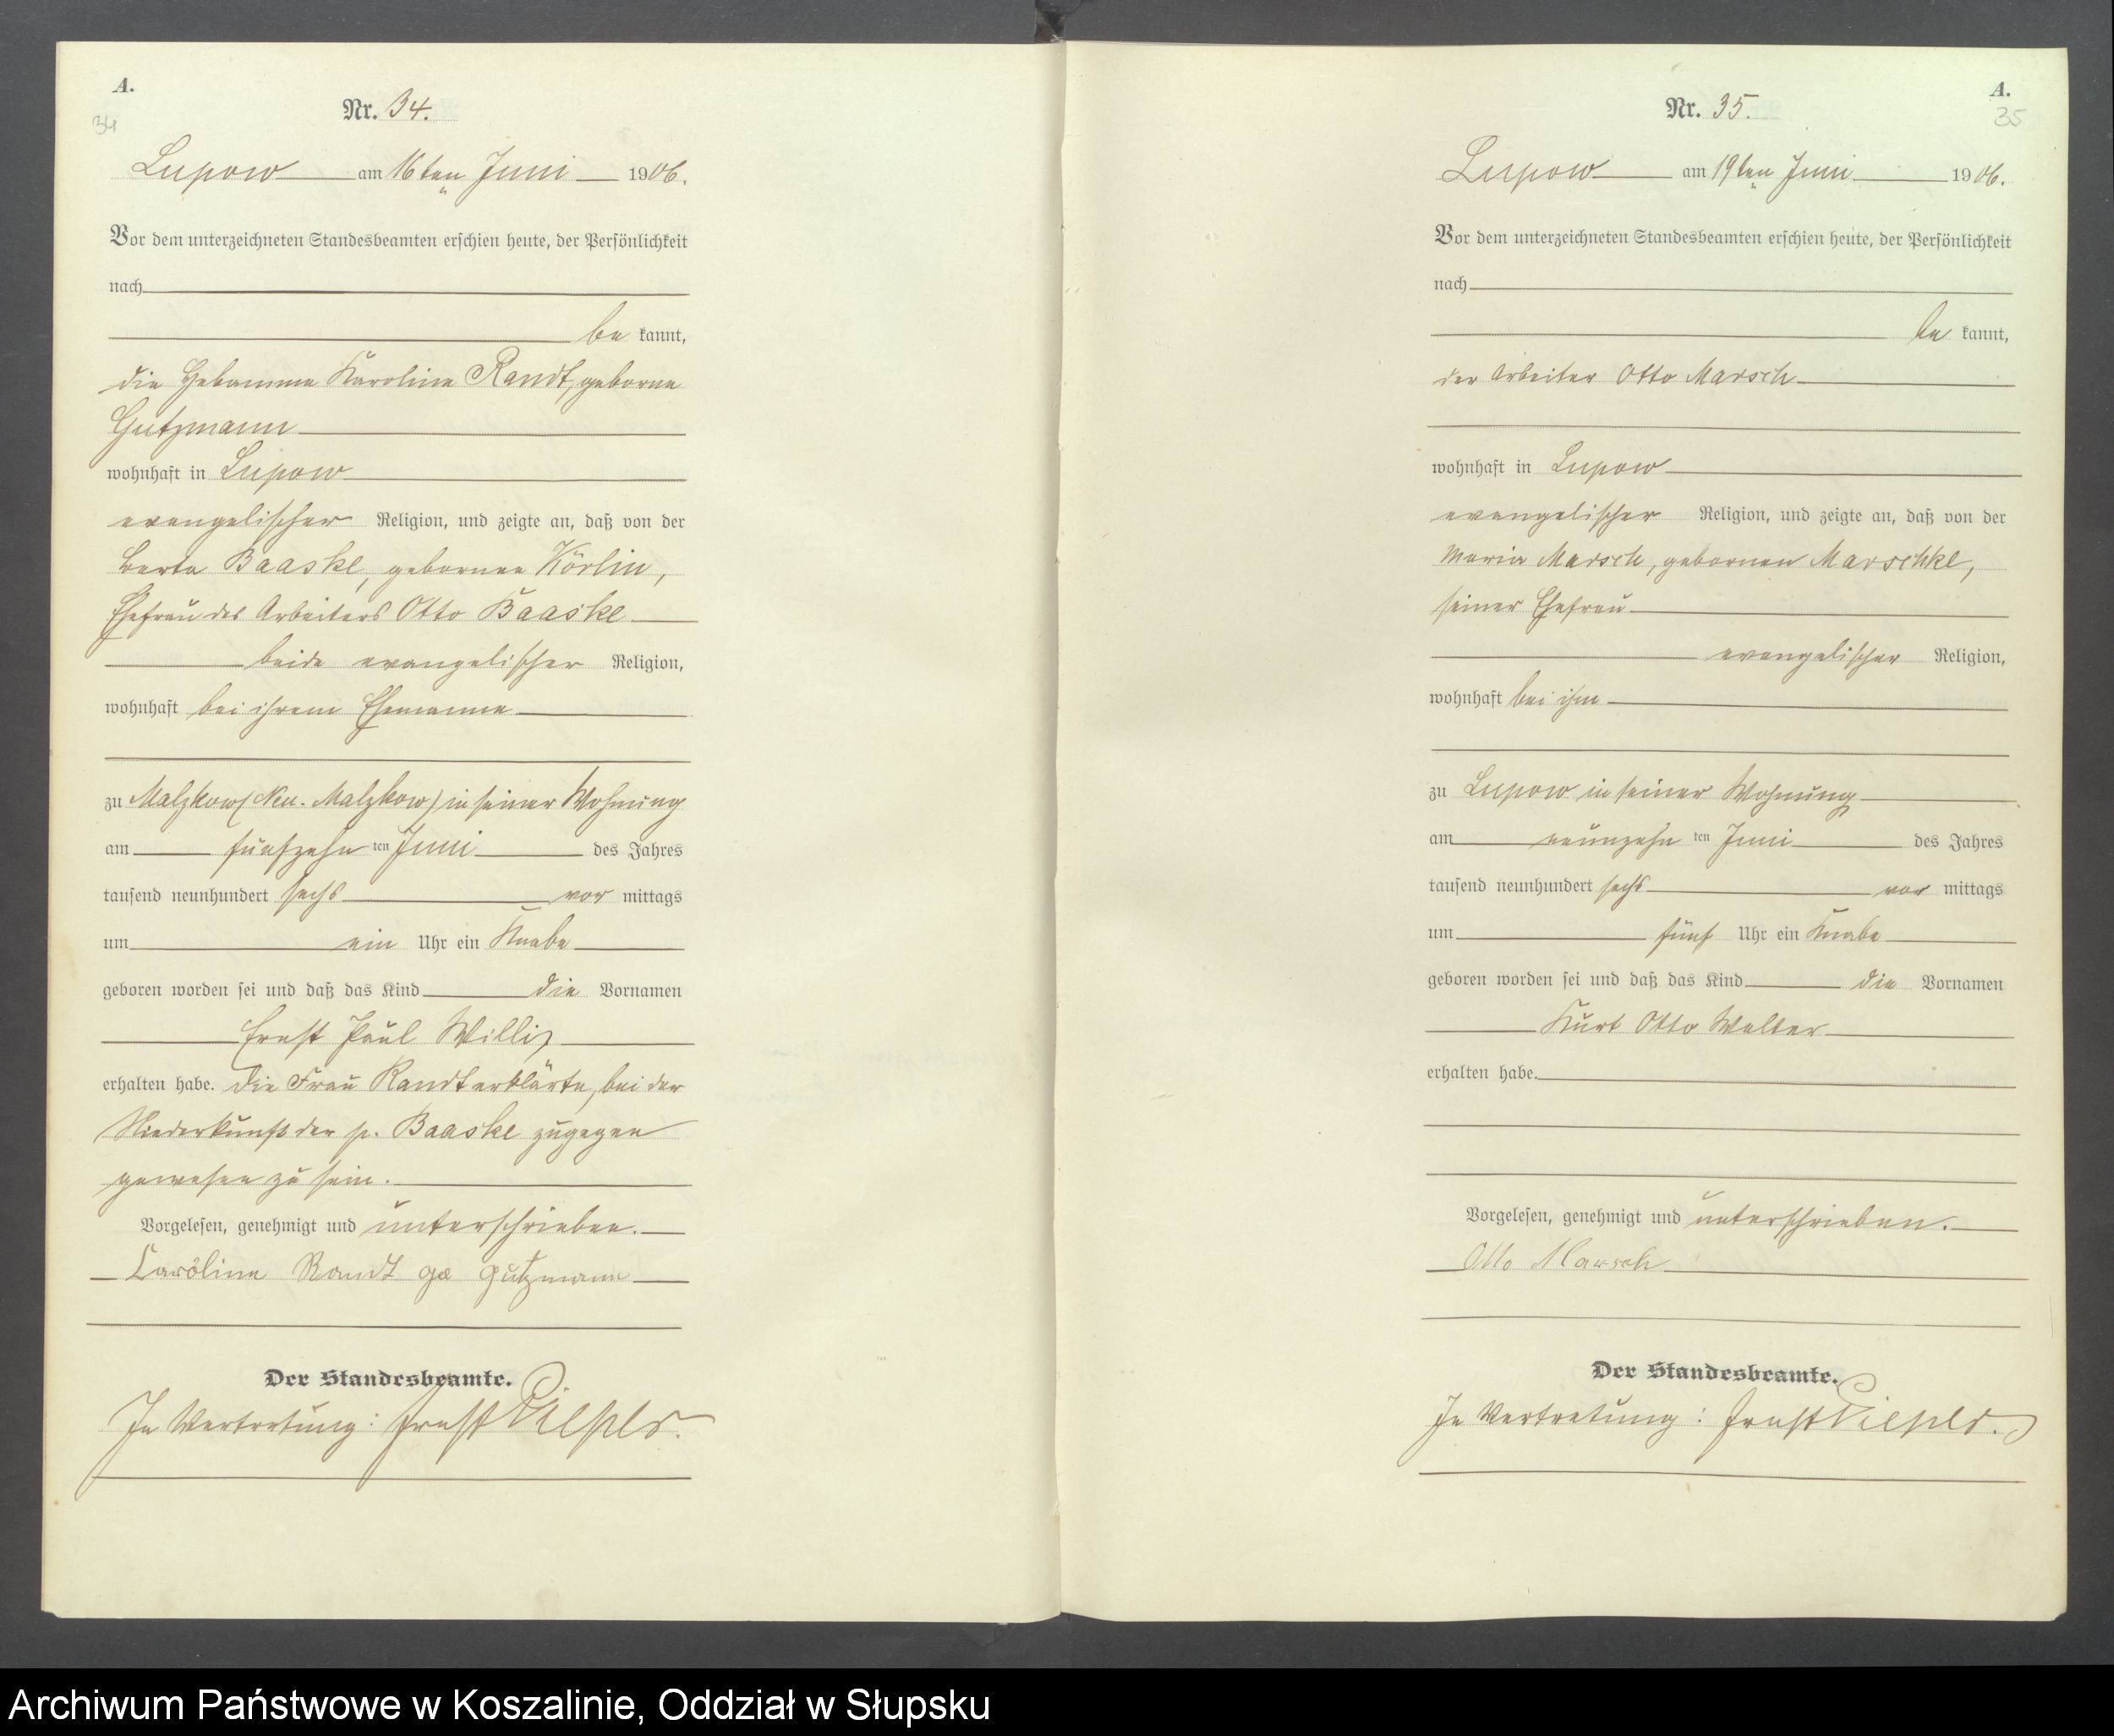 A.
34
Nr. 34.
Lupow am 16ten Juni 1906.
Vor dem unterzeichneten Standesbeamten erschien heute, der Persönlichkeit
nach
be kannt,
die Hebamme Karoline Randt, geborne
Gutzmann
wohnhaft in Lupow
evangelischer Religion, und zeigte an, daß von der
Berta Baaske, gebornen Körlin,
Ehefrau des Arbeiters Otto Baaske
beide evangelischer Religion,
wohnhaft bei ihrem Ehemanne
zu Malzkow (Neu-Malzkow) in seiner Wohnung
am fünfzehn ten Juni des Jahres
tausend neunhundert sechs vor mittags
um ein Uhr ein Knabe
geboren worden sei und daß das Kind die Vornamen
Ernst Paul Willi
erhalten habe. Die Frau Randt erklärte, bei der
Niederkunft der p. Baaske zugegen
gewesen zu sein.
Vorgelesen, genehmigt und unterschrieben.
Caroline Randt ge gutzmann
Der Standesbeamte.
In Vertretung: Ernst
A.
35
Nr. 35.
Lupow am 19ten Juni 1906.
Vor dem unterzeichneten Standesbeamten erschien heute, der Persönlichkeit
nach
be kannt,
der Arbeiter Otto Marsch
wohnhaft in Lupow
evangelischer Religion, und zeigte an, daß von der
Maria Marsch, gebornen Marschke,
seiner Ehefrau
evangelischer Religion,
wohnhaft bei ihm
zu Lupow in seiner Wohnung
am neunzehn ten Juni des Jahres
tausend neunhundert sechs vor mittags
um fünf Uhr ein Knabe
geboren worden sei und daß das Kind die Vornamen
Kurt Otto Walter
erhalten habe.
Vorgelesen, genehmigt und unterschrieben.
Otto Marsch
Der Standesbeamte.
In Vertretung: Ernst
Archiwum Państwowe w Koszalinie, Oddział w Słupsku